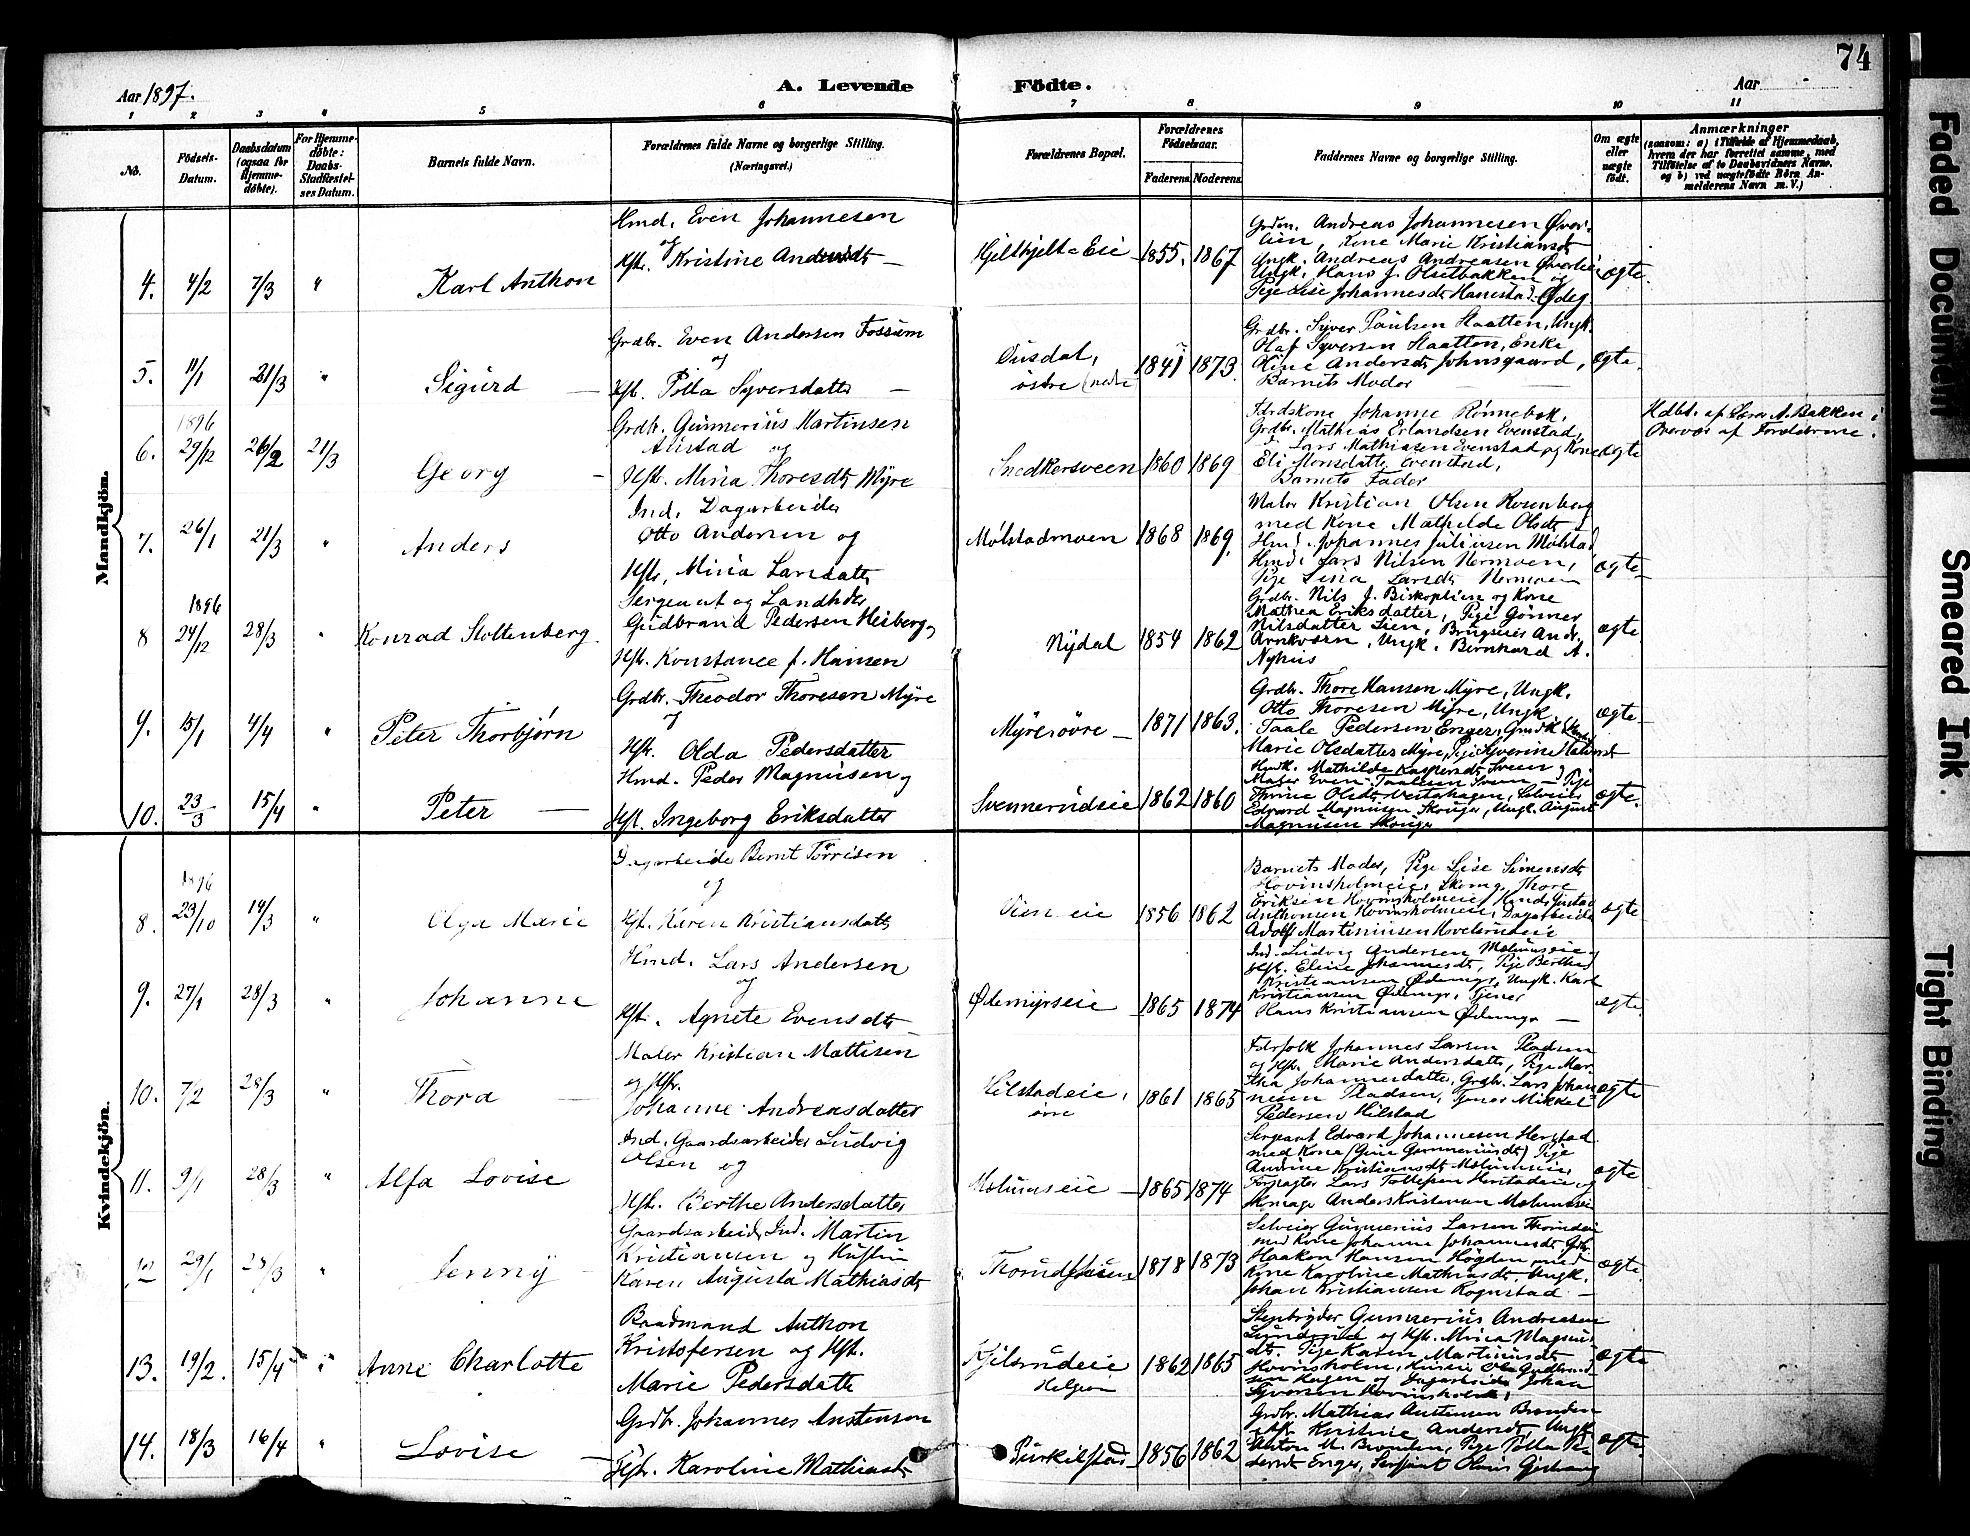 74
Aar 1897.
A. Levende Födte.
Aar
1 2 3 4 5 6 7 8 9 10 11
No.
Födsels-Datum.
Daabsdatum (ogsaa for Hjemme-döbte).
For Hjemme-döbte: Daabs-Stadfæstel-ses Datum.
Barnets fulde Navn.
Forældrenes fulde Navne og borgerlige Stilling.
(Næringsvei.)
Forældrenes Bopæl.
Forældrenes Födselsaar.
Faderens. Moderens.
Faddernes Navne og borgerlige Stilling.
Om ægte eller uægte födt.
Anmærkninger
(saasom: a) i Tilfælde af Hjemmedaab, hvem der har forrettet samme, med Tilföielse af to Daabsvidners Navne, og b) ved uægtefödte Börn An-melderens Navn m. V.)
Mandkjön.
4. 4/2 7/3 " Karl Anthon
Hmd. Even Johannesen
og
Hst. Kristine Andersdt
1855. 1867
Grdm. Andreas Johannesen Øver-
lien, Kone Marie Kristiansdt
Ungk. Andreas Andreasen Øverlie
Ungk. Hans J. Olsetbakken og
Pige Lise Johannesdt
ægte
5. 11/1 21/3 " Sigurd
Grdbr. Even Andersen Fossum
og
Hst. Syversdatter
østre
1841 1873
Grdbr. Syver Paulsen Haatten, Ungk.
Olaf Syversen Haatten, Enke
Oline Andersdt Johnsgaard,
Barnets Moder
ægte
6. 1896 29/12 26/2 21/3 Georg
Grdbr. Gunnerius Martinsen
Alstad og
Hst. Mina Thoresdt Myre
Snedkersveen 1860 1869
Johanne Rönnebek,
Grdbr. Mathias Erlandsen Evenstad,
Lars Mathiasen Evenstad og Kone
Eli Monsdatter Evenstad,
Barnets Fader
ægte
Hdbt. af Lars A. Bakken i
Overvær af Forældrene.
7. 26/1 21/3 " Anders
Ind. Dagarbeider
Otto Andersen og
Hst. Mina Larsdatter
Mølstadmoen 1868 1869
Maler Kristian Olsen Rosenberg
med Kone Mathilde Olsdt
Hmd. Johannes Juliussen Mølstad
Hmd. Lars Nilsen Nermoen,
Pige Lina Larsdt Nermoen
ægte
8 1896 24/12 28/3 " Konrad Stoltenberg.
Sergeant og Landhdlr
Gudbrand Pedersen Heiberg og
Hst. Konstance f. Hansen
Nydal 1854 1862
Grdbr. Nils J. Biskoplien og Kone
Mathea Eriksdatter, Pige Gønner
Nilsdatter Lien, Brugseier Andr.
Arnkværn, Ungk. Bernhard A.
Nyhus
ægte
9. 15/1 4/4 " Peter Thorbjørn
Grdbr. Theodor Thoresen Myre
og
Hst. Olda Pedersdatter
Myre øvre 1871 1863.
Grdbr. Thore Hansen Myre, Ungk.
Otto Thoresen Myre, Ungk.
Taale Pedersen Enger,
Marie Olsdatter Myre, Pige
ægte
10. 23/3 15/4 " Peter
Hmd. Peder Magnusen og
Hst. Ingeborg Eriksdatter
Svennerudeie 1862 1860
Mathilde Kaspersdt Sveen og
Maler Even Taalesen Sveen, Pige
Thrine Olsdt
Edvard Magnusen Skonger, Ungk. August
Magnusen Skonger
ægte.
Kvindekjön.
8. 1896 23/10 14/3 " Olga Marie
Dagarbeider Bernt Törrisen
og
Hst. Karen Kristiansdatter
Lien eie 1856 1862
Barnets Moder, Pige Lise Simensdt
Hovinsholmeie, Skomg. Thore
Eriksen Hovinsholmeie, Hmd. Gustav
Anthonsen Hovinsholmeie, Dagarbeider
Adolf Martiniusen
ægte
9. 27/1 28/3 " Johanne
Hmd. Lars Andersen
og
Hst. Agnete Evensdt
Ødemyrseie 1865 1874
Ind. Ludvig Andersen Molunseie og
Hst. Eline Johannesdt, Pige Berthe
Kristiansen Ødemyr, Ungk. Karl
Kristiansen Ødemyr, Tjener
Hans Kristiansen Ødemyr
ægte
10. 7/2 28/3 " Thora
Maler Kristian Mattisen
og Hst.
Johanne Andreasdatter
Hilstadeie, 1861 1865
Johannes Larsen Pladsen
og Hst. Marie Andersdatter, Pige Mar-
tha Johannesdatter, Grdbr. Lars Johan-
nesen Pladsen, Tjener Mikkel
Pedersen Hilstad
ægte
11. 9/1 28/3 " Alfa Lovise
Ind. Gaardsarbeider Ludvig
Olsen og
Hst. Berthe Andersdatter
Molunseie 1865 1874
Sergeant Edvard Johannesen Herstad
med Kone Gine Gunneriusdt, Pige
Andrine Kristiansdt Molunseie,
Forpagter Lars Tollefsen Herstadeie og
Skomag. Anders Kristiansen Molunseie
ægte
12 29/1 28/3 " Jenny
Gaardsarbeider, Ind. Martin
Kristiansen og Hustru
Karen Augusta Mathiasdt
1878 1873
Selveier Gunnerius Larsen
med Kone Johanne Johannesdt, Grdbr.
Haakon Hansen Høgden med
Kone Karoline Mathiasdt, Ungk.
Johan Kristiansen Rognstad
ægte
13. 19/2. 15/4 " Anne Charlotte
Baadmand Anthon
Kristofersen og Hst.
Marie Pedersdatter
Kjelsrudeie
Helgøen
1862 1865
Stenbryder Gunnerius Andreasen
og Hst. Mina Magnus-
dt. Pige Karen Martinusdt
Hovinsholm, Ole Gudbrand-
sen Hagen og Dagarbeider Johan
Syversen Hovinsholm
ægte
14. 18/3 16/4 " Lovise
Grdbr. Johannes Anstensen
Hst. Karoline Mathiasdt
Purkelstad 1856 1862
Grdbr. Mathias Austensen Brenden
Hst. Kristine Andersdt, Ungk.
Anton M. Brenden, Pige
Enger, Serjeant
ægte
Faded Document
Smeared Ink.
Tight Binding